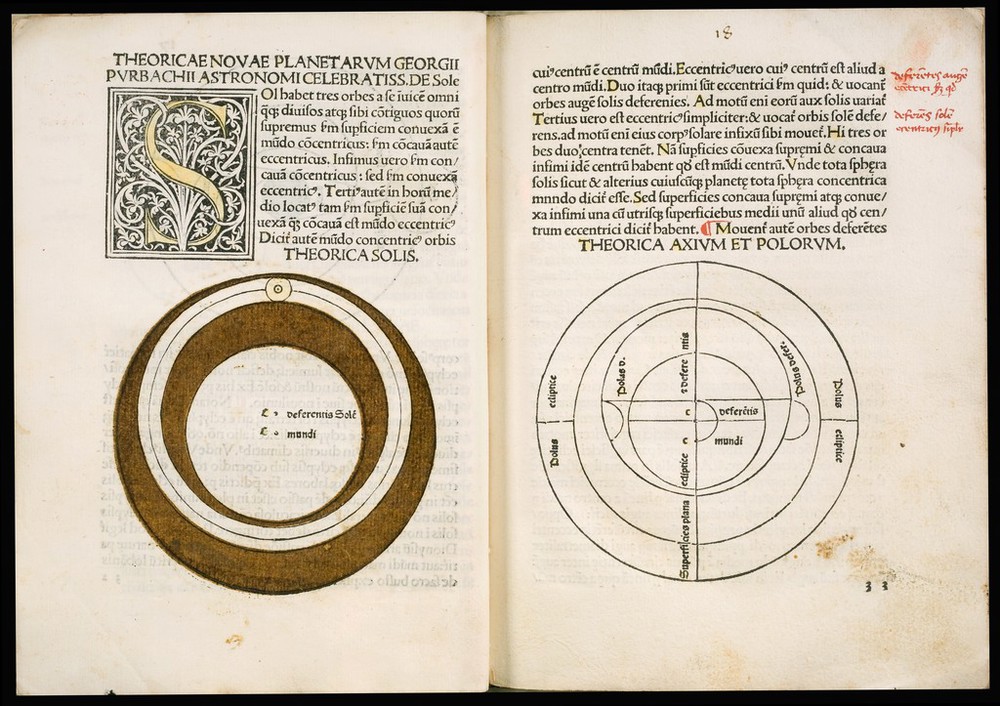 THEORICAE NOVAE PLANETARVM GEORGII
PVRBACHII ASTRONOMI CELEBRATISS. DE Sole
SOl habet tres orbes a se īuicē omni
q̄q̢ diuisos atq̢ sibi cōtiguos quorū
supremus s̄m supficiem conuexā ē
mūdo cōcentricus: s̄m cōcauā autē
eccentricus. Infimus uero s̄m con/
cauā cōcentricus: sed s̄m conuexā
eccentricꝰ. Tertiꝰ autē in horū me/
dio locatꝰ tam s̄m supficiē suā con/
uexā q̄q̢ cōcauā est mūdo eccentricꝰ
Dicit̄ autē mūdo concentricꝰ orbis
THEORICA SOLIS.
c deferentis Solē
c mundi
18
cuiꝰ centrū ē centrū mūdi. Eccentricꝰ uero cuiꝰ centrū est aliud a
centro mūdi. Duo itaq̢ primi sūt eccentrici s̄m quid: & uocant̄
orbes augē solis deferentes. Ad motū eni eorū aux solis uariat̄
Tertius uero est eccentricꝰ simpliciter: & uocat̄ orbis solē defe/
rens. ad motū eni eius corpꝰ solare infixū sibi mouet̄. Hi tres or
bes duo centra tenēt. Nā supficies cōuexa supremi & concaua
infimi idē centrū habent qđ est mūdi centrū. Vnde tota sphęra
solis sicut & alterius cuiuscūq̢ planetę tota sphęra concentrica
mundo dicit̄ esse. Sed superficies concaua supręmi atq̢ conue/
xa infimi una cū utrisq̢ superficiebus medii unū aliud qđ cen/
trum eccentrici dicit̄ habent. ¶ Mouent̄ autē orbes deferētes
THEORICA AXIVM ET POLORVM.
deferētes augē
deferēs solē
Polus d.
Polus defer.
ecliptice
Polus
Polus
ecliptice
c
deferētis
c
mundi
ecliptice
Superficies plana